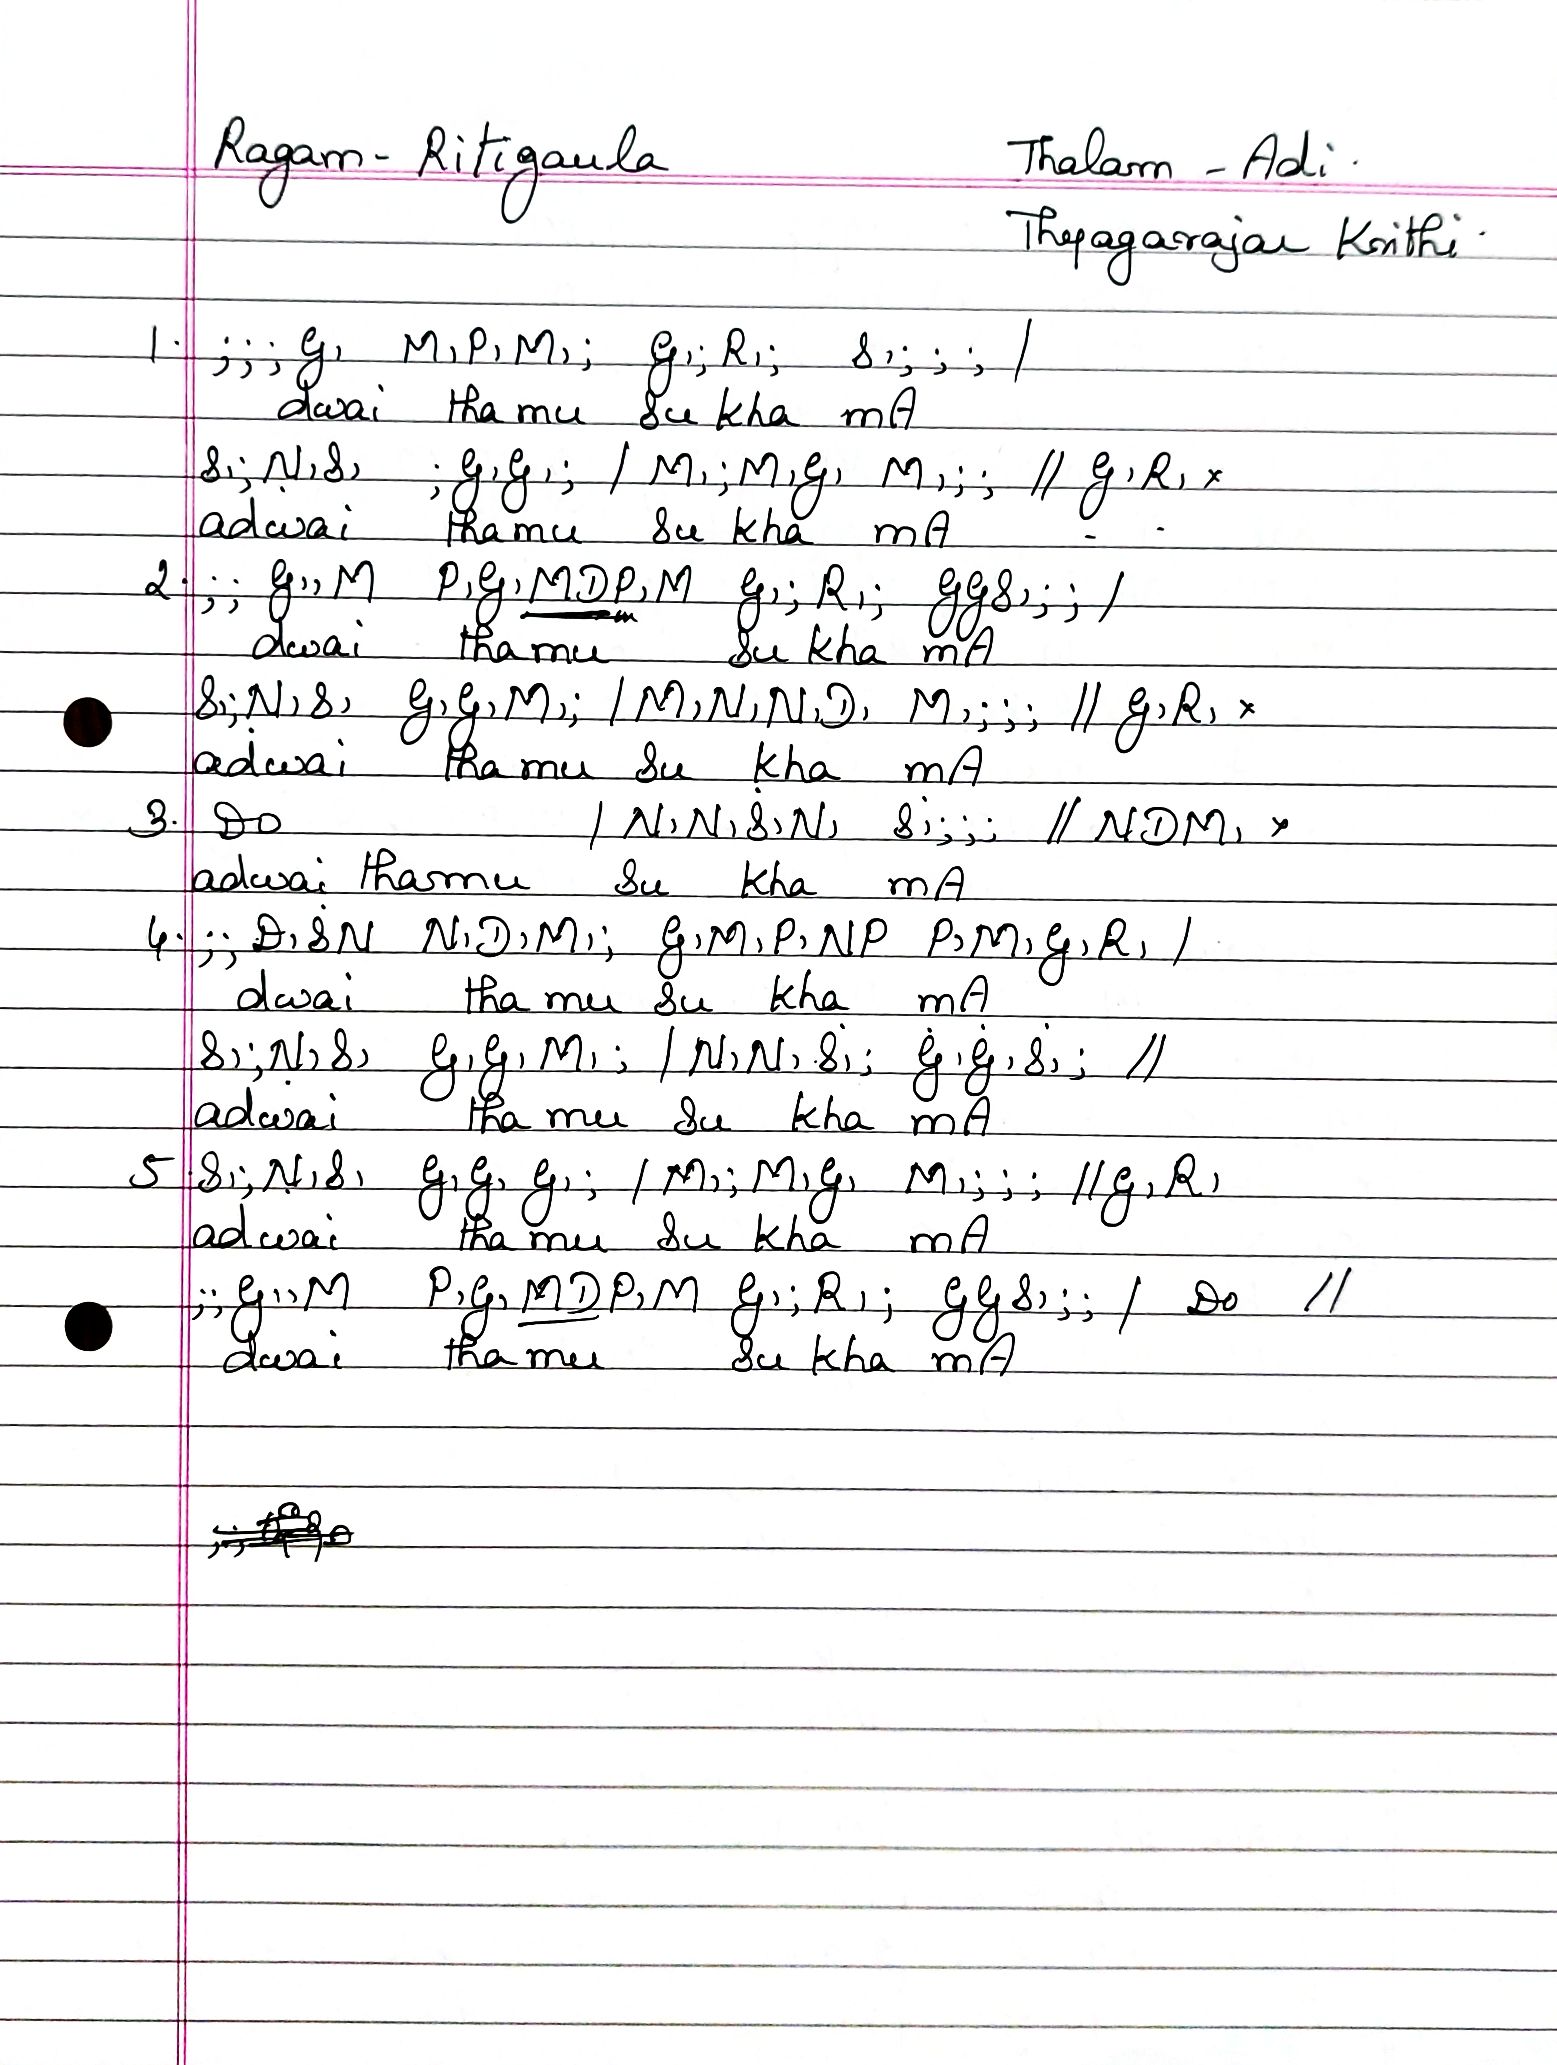 Ragam - Ritigaula Thalam - Adi.
Thyagarajar Krithi.
1. ;;;G, M,P,M,; G,;R,; S,;;; /
dwai thamu su kha mA
S,;Ṇ,S, ;G,G,; / M,;M,G, M,;; // G,R, x
adwai thamu su kha mA - -
2. ;; G,,M P,G,MDP,M G,;R,; GGS,;; /
dwai thamu su kha mA
S,;Ṇ,S, G,G,M,; / M,N,N,D, M,;;; // G,R, x
adwai thamu su kha mA
3. Do / N,N,Ṡ,N, Ṡ,;;; // NDM, x
adwai thamu su kha mA
4. ;; D,ṠN N,D,M,; G,M,P,NP P,M,G,R, /
dwai tha mu su kha mA
S,;Ṇ,S, G,G,M,; / N,N,Ṡ,; Ġ,Ġ,Ṡ,; //
adwai tha mu su kha mA
5 S,;Ṇ,S, G,G,G,; / M,;M,G, M,;;; // G,R,
adwai tha mu su kha mA
;;G,,M P,G,MDP,M G,;R,; GGS,;; / Do //
dwai tha mu su kha mA